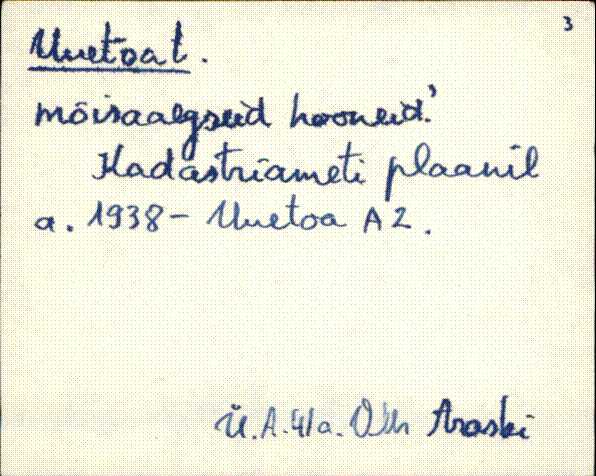 3
Uuetoa t.
mõisaaegseid hooneid.
Kadastriameti plaanil
a. 1938 - Uuetoa A 2.
Ü.A. 41a. Araski